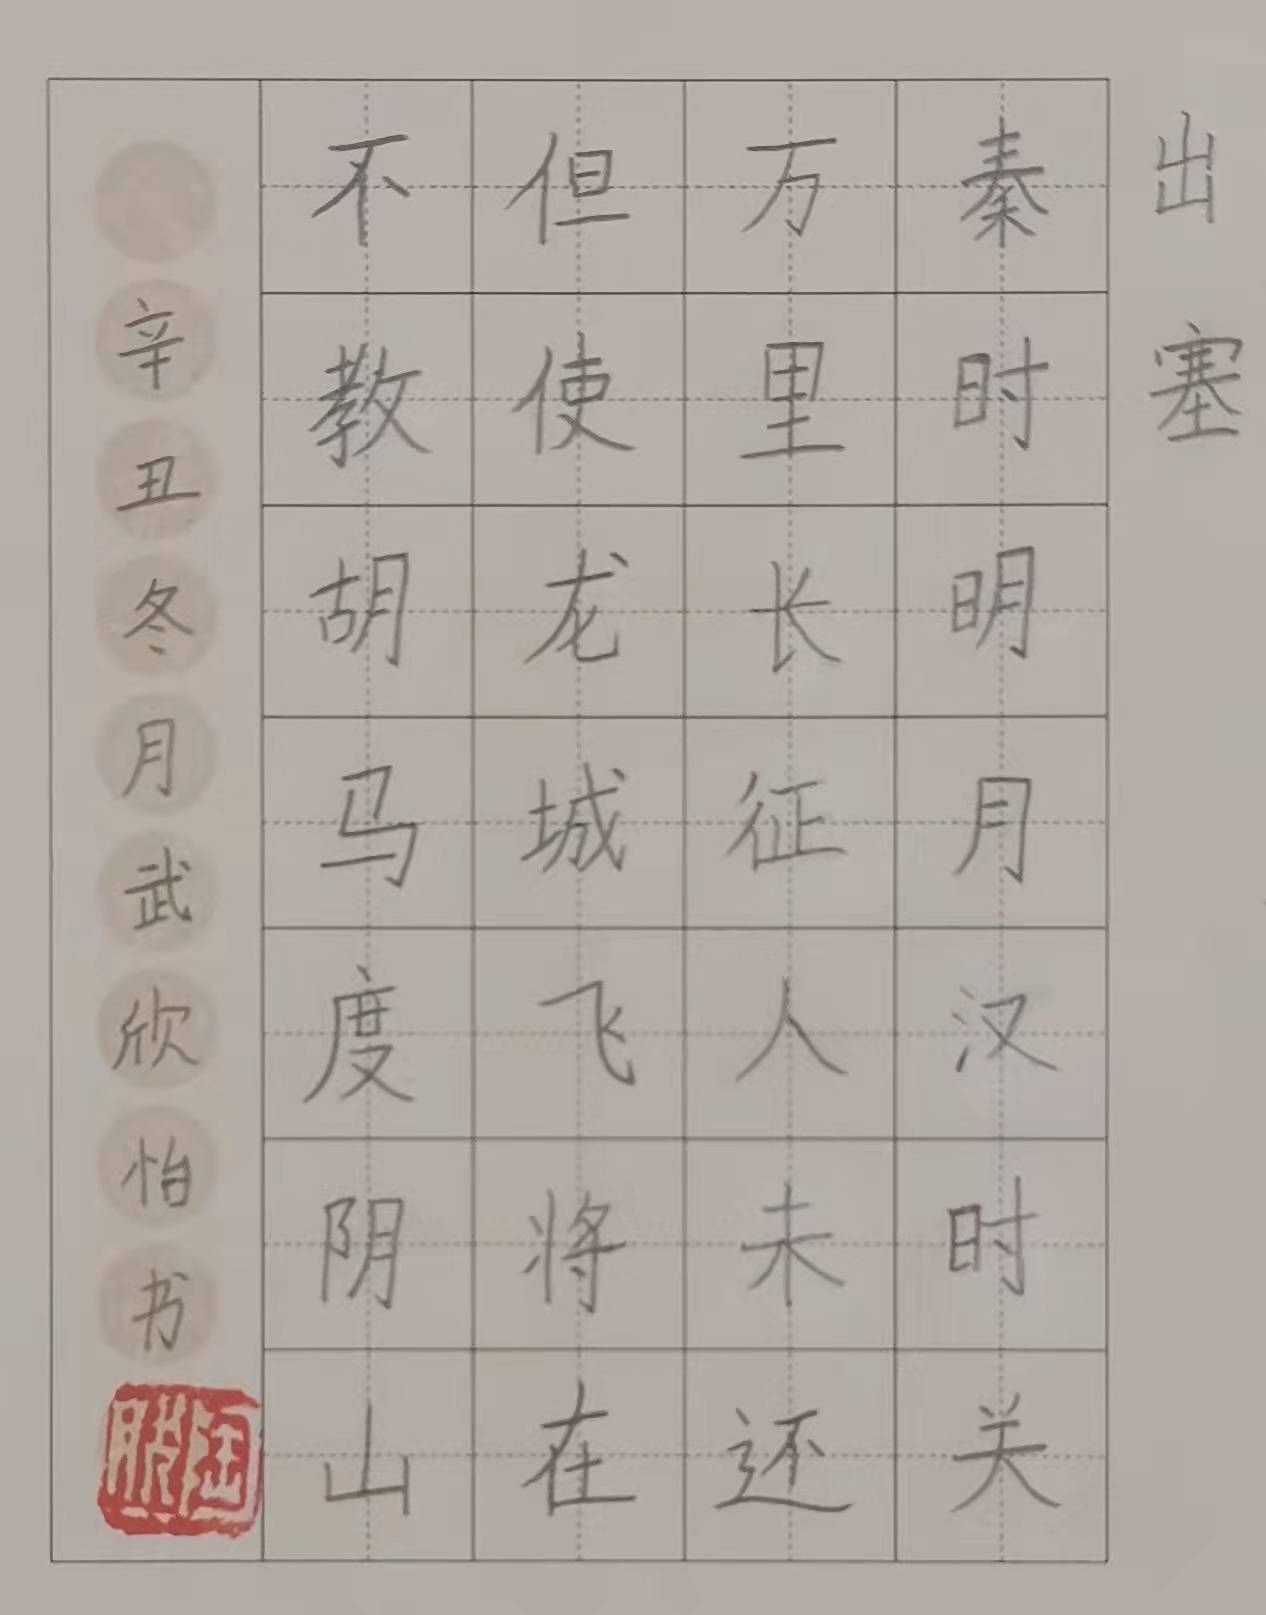 出塞
秦时明月汉时关
万里长征人未还
但使龙城飞将在
不教胡马度阴山
辛丑冬月武欣怡书